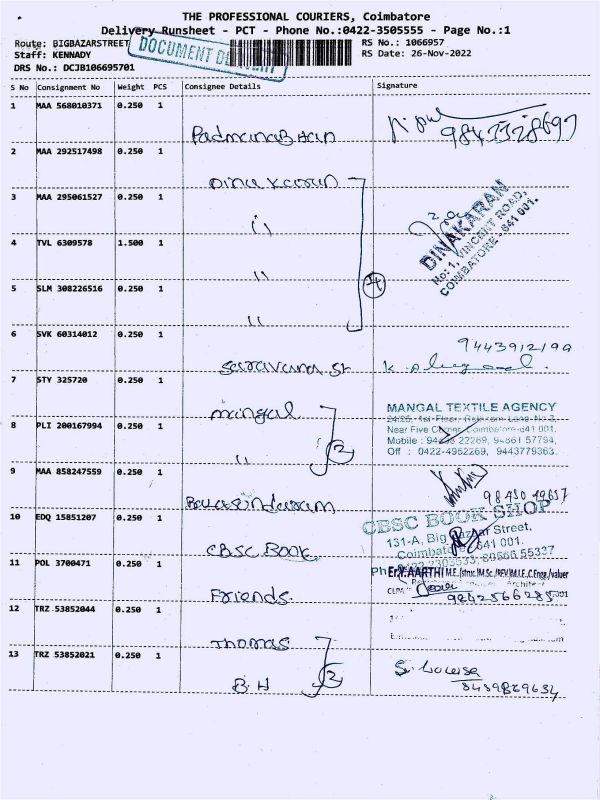 THE PROFESSIONAL COURIERS, Coimbatore
Delivery Runsheet - PCT - Phone No.:0422-3505555 - Page No.:1
Route: BIGBAZARSTREET
RS No.: 1066957
Staff: KENNADY
RS Date: 26-Nov-2022
DRS No.: DCJB106695701
DOCUMENT
S No Consignment No Weight PCS Consignee Details Signature
1 MAA 568010371 0.250 1
Padmanabhan
2 MAA 292517498 0.250 1
Dinakaran
3 MAA 295061527 0.250 1
''
DINAKARAN
No: 1, VINCENT ROAD,
COIMBATORE - 641 001.
4 TVL 6309578 1.500 1
''
5 SLM 308226516 0.250 1
4
''
6 SVK 60314012 0.250 1
Saravana St
7 STY 325720 0.250 1
Mangal
MANGAL TEXTILE AGENCY
Near Five Corner, Coimbatore-641 001.
Off : 0422-4952269, 9443779363.
8 PLI 200167994 0.250 1
''
2
9 MAA 858247559 0.250 1
Balasundaram
10 EDQ 15851207 0.250 1
CBSC Book
CBSC BOOK SHOP
131-A, Big Bazaar Street,
Coimbatore 641 001.
11 POL 3700471 0.250 1
Friends
Er.Y.AARTHI
9842566285
12 TRZ 53852044 0.250 1
Thomas
13 TRZ 53852021 0.250 1
B.H
2
S. Louisa
8489829634